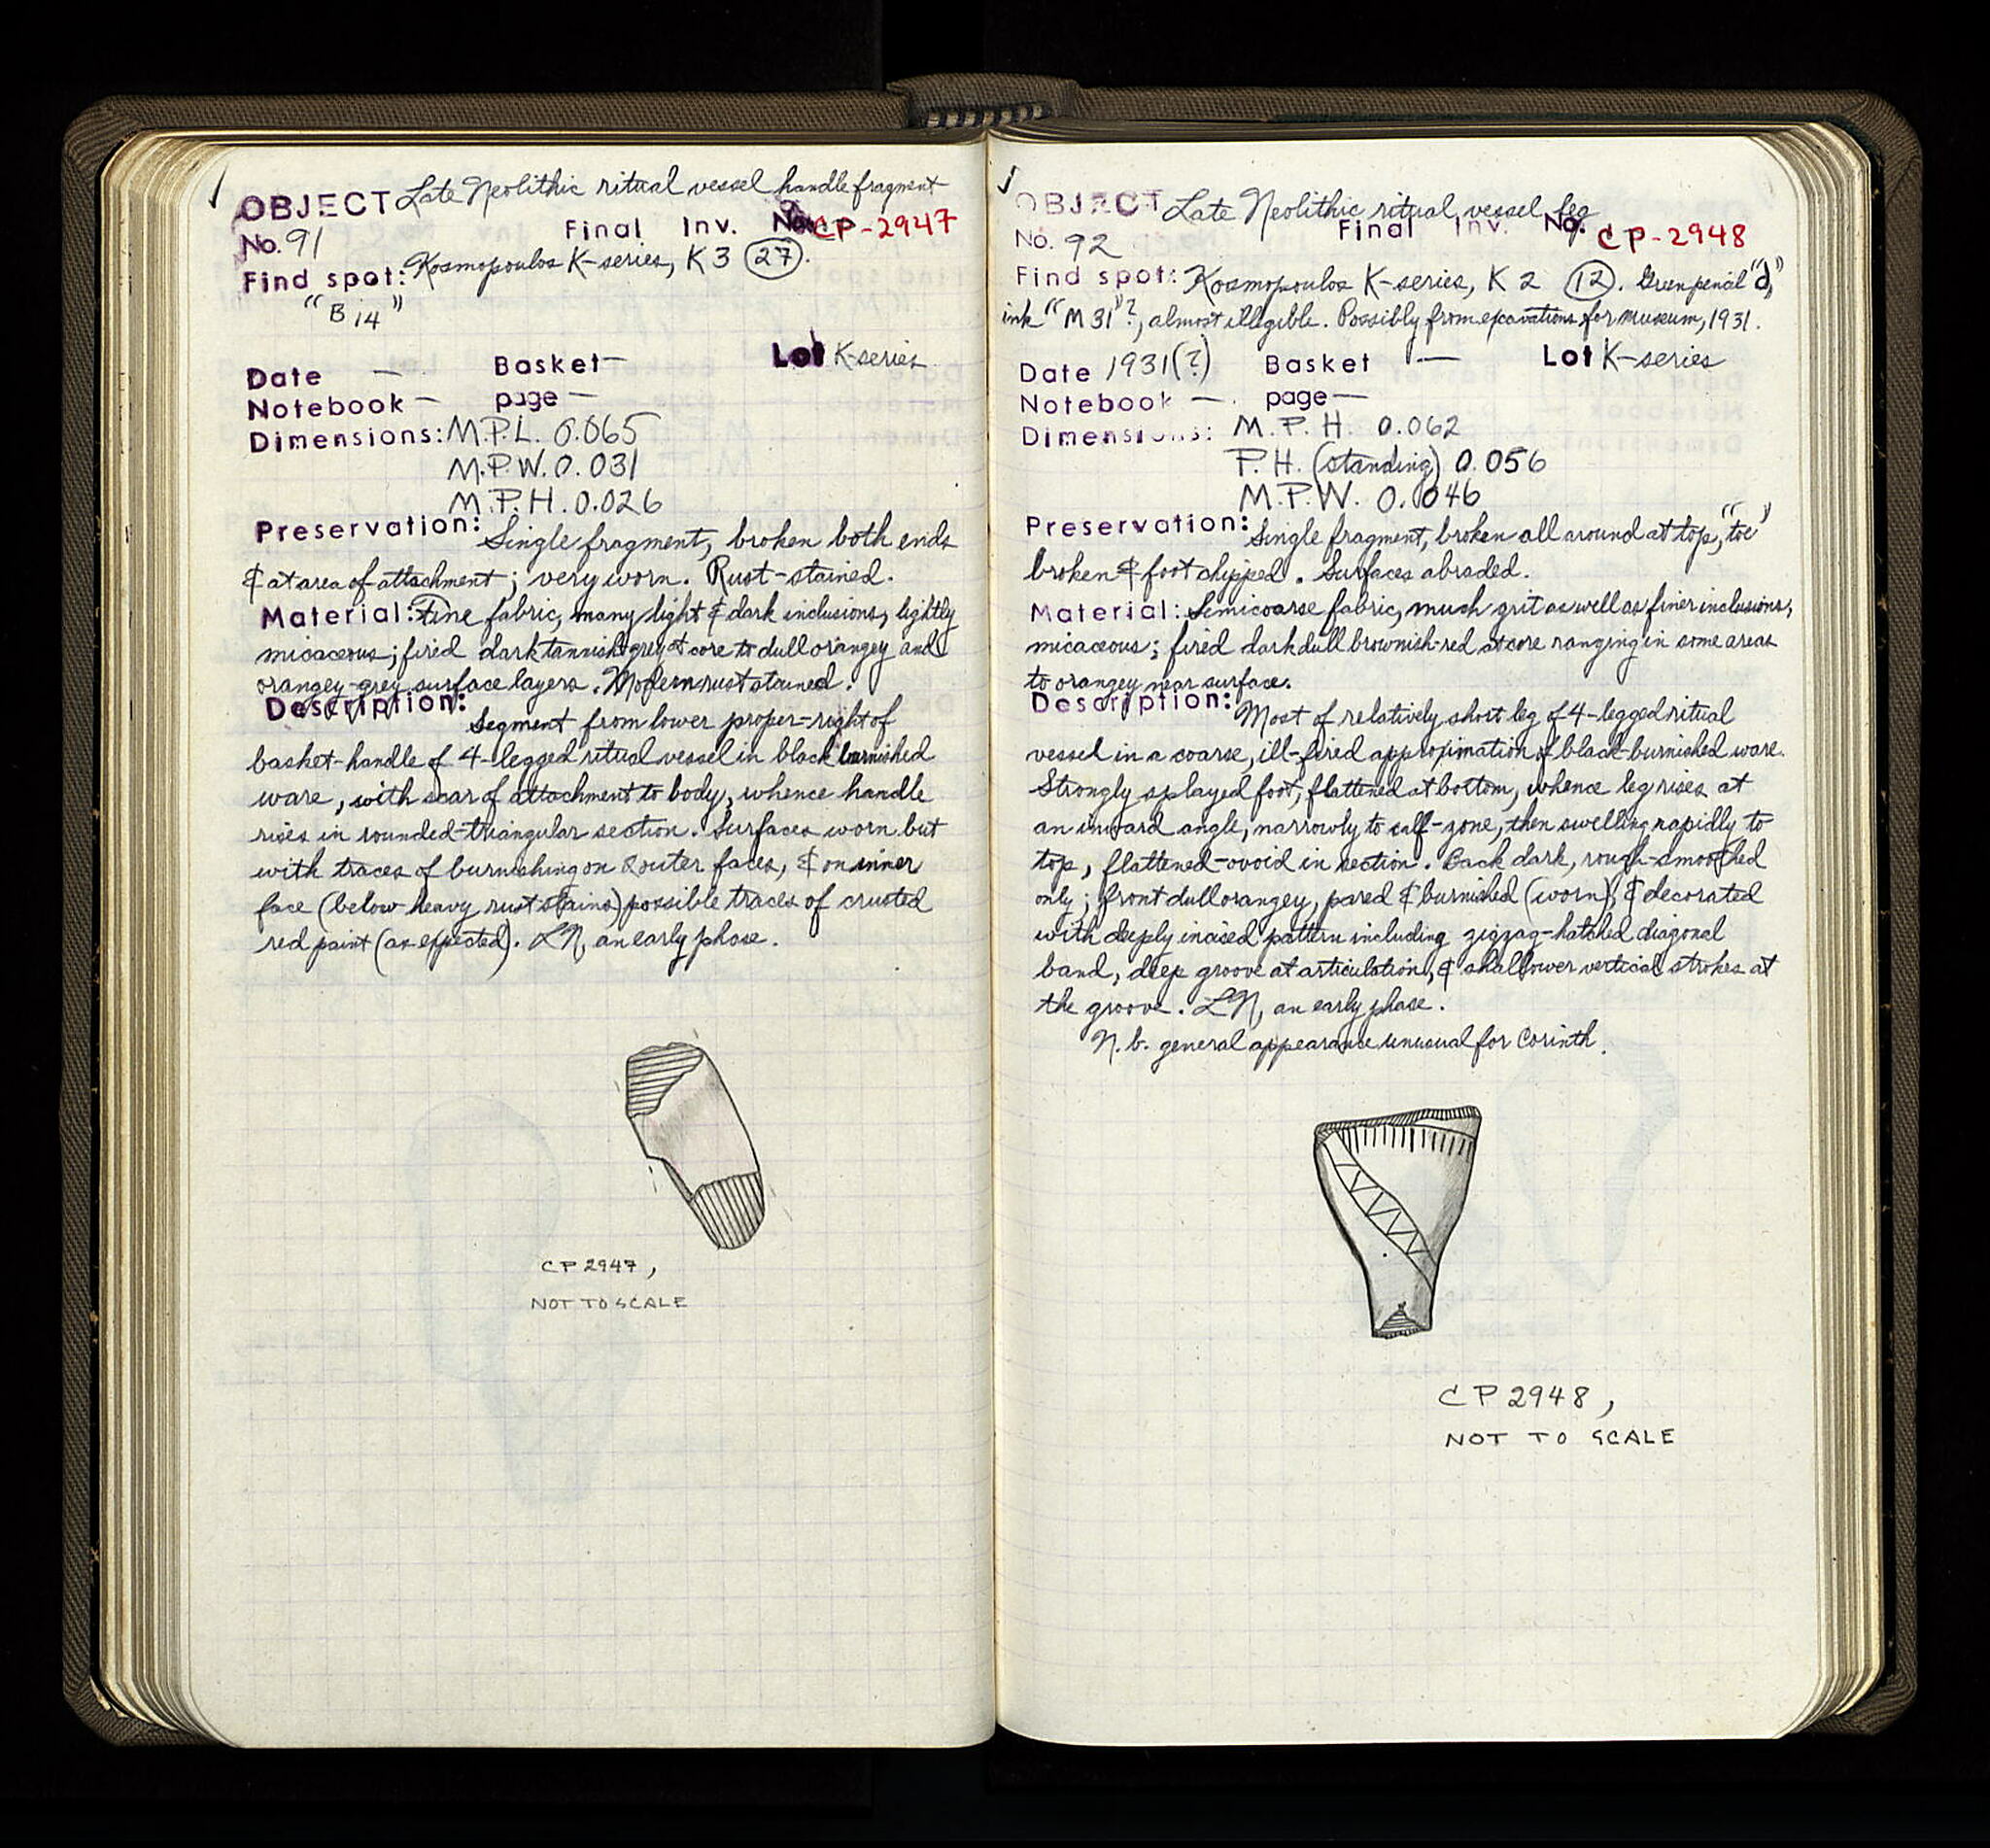 OBJECT Late Neolithic ritual vessel handle fragment
No. 91 Final Inv. No. CP-2947
Find spot: Kosmopoulos K-series, K 3 (27).
"B 14"
Date — Basket — Lot K-series
Notebook — page —
Dimensions: M.P.L. 0.065
M.P.W. 0.031
M.P.H. 0.026
Preservation: Single fragment, broken both ends
& at area of attachment; very worn. Rust-stained.
Material: Fine fabric, many light & dark inclusions, lightly
micaceous; fired dark tannish-grey at core to dull orangey and
orangey-grey surface layers. Modern rust stained.
Description: Segment from lower proper-right of
basket-handle of 4-legged ritual vessel in black burnished
ware, with scar of attachment to body, whence handle
rises in rounded-triangular section. Surfaces worn but
with traces of burnishing on outer faces, & on inner
face (below heavy rust stains) possible traces of crusted
red paint (as expected). LN, an early phase.
CP 2947,
NOT TO SCALE
OBJECT Late Neolithic ritual vessel leg
No. 92 Final Inv. No. CP-2948
Find spot: Kosmopoulos K-series, K 2 (12). Green pencil "d",
ink "M 31"?, almost illegible. Possibly from excavations for museum, 1931.
Date 1931(?) Basket — Lot K-series
Notebook — page —
Dimensions: M.P.H. 0.062
P.H. (standing) 0.056
M.P.W. 0.046
Preservation: Single fragment, broken all around at top, "toe"
broken & foot chipped. Surfaces abraded.
Material: Semicoarse fabric, much grit as well as finer inclusions,
micaceous; fired dark dull brownish-red at core ranging in some areas
to orangey near surface.
Description: Most of relatively short leg of 4-legged ritual
vessel in a coarse, ill-fired approximation of black-burnished ware.
Strongly splayed foot, flattened at bottom, whence leg rises at
an inward angle, narrowly to calf-zone, then swelling rapidly to
top, flattened-ovoid in section. Back dark, rough-smoothed
only; front dull orangey, pared & burnished (worn), & decorated
with deeply incised pattern including zigzag-hatched diagonal
band, deep groove at articulation, & shallower vertical strokes at
the groove. LN, an early phase.
N.b. general appearance unusual for Corinth.
CP 2948,
NOT TO SCALE